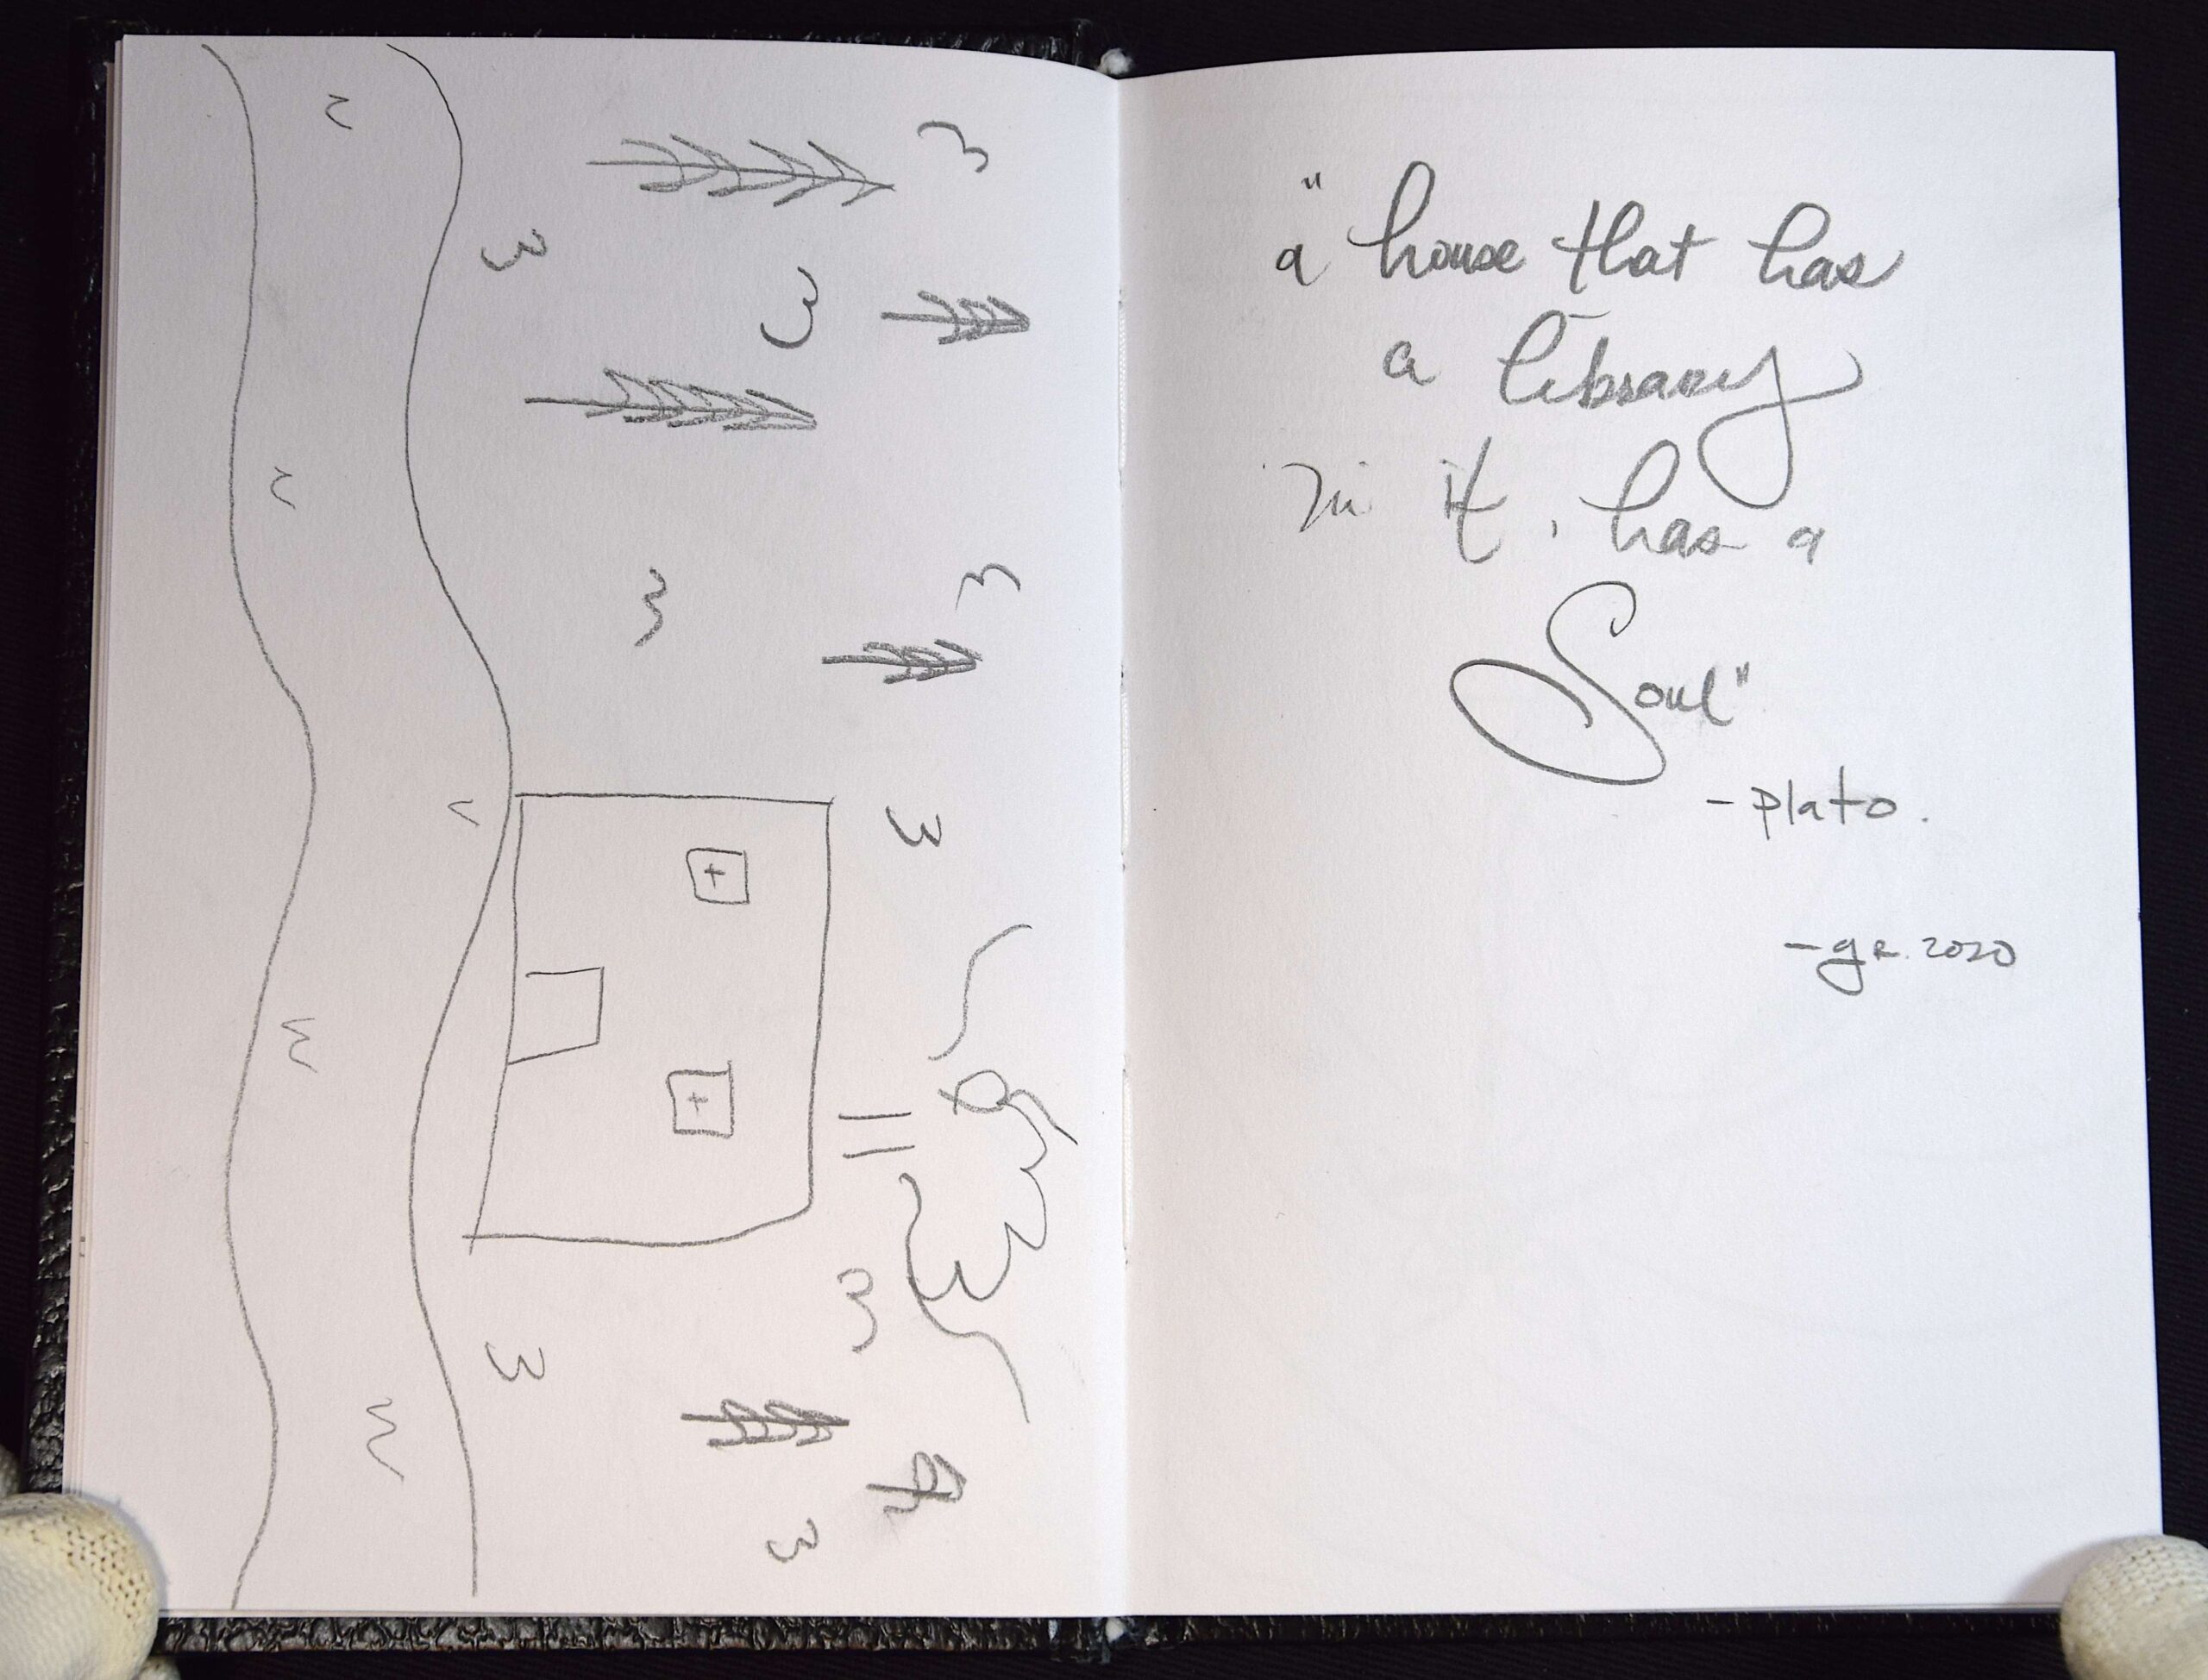 "a house that has
a library
in it, has a
Soul"
-plato.
-gr. 2020